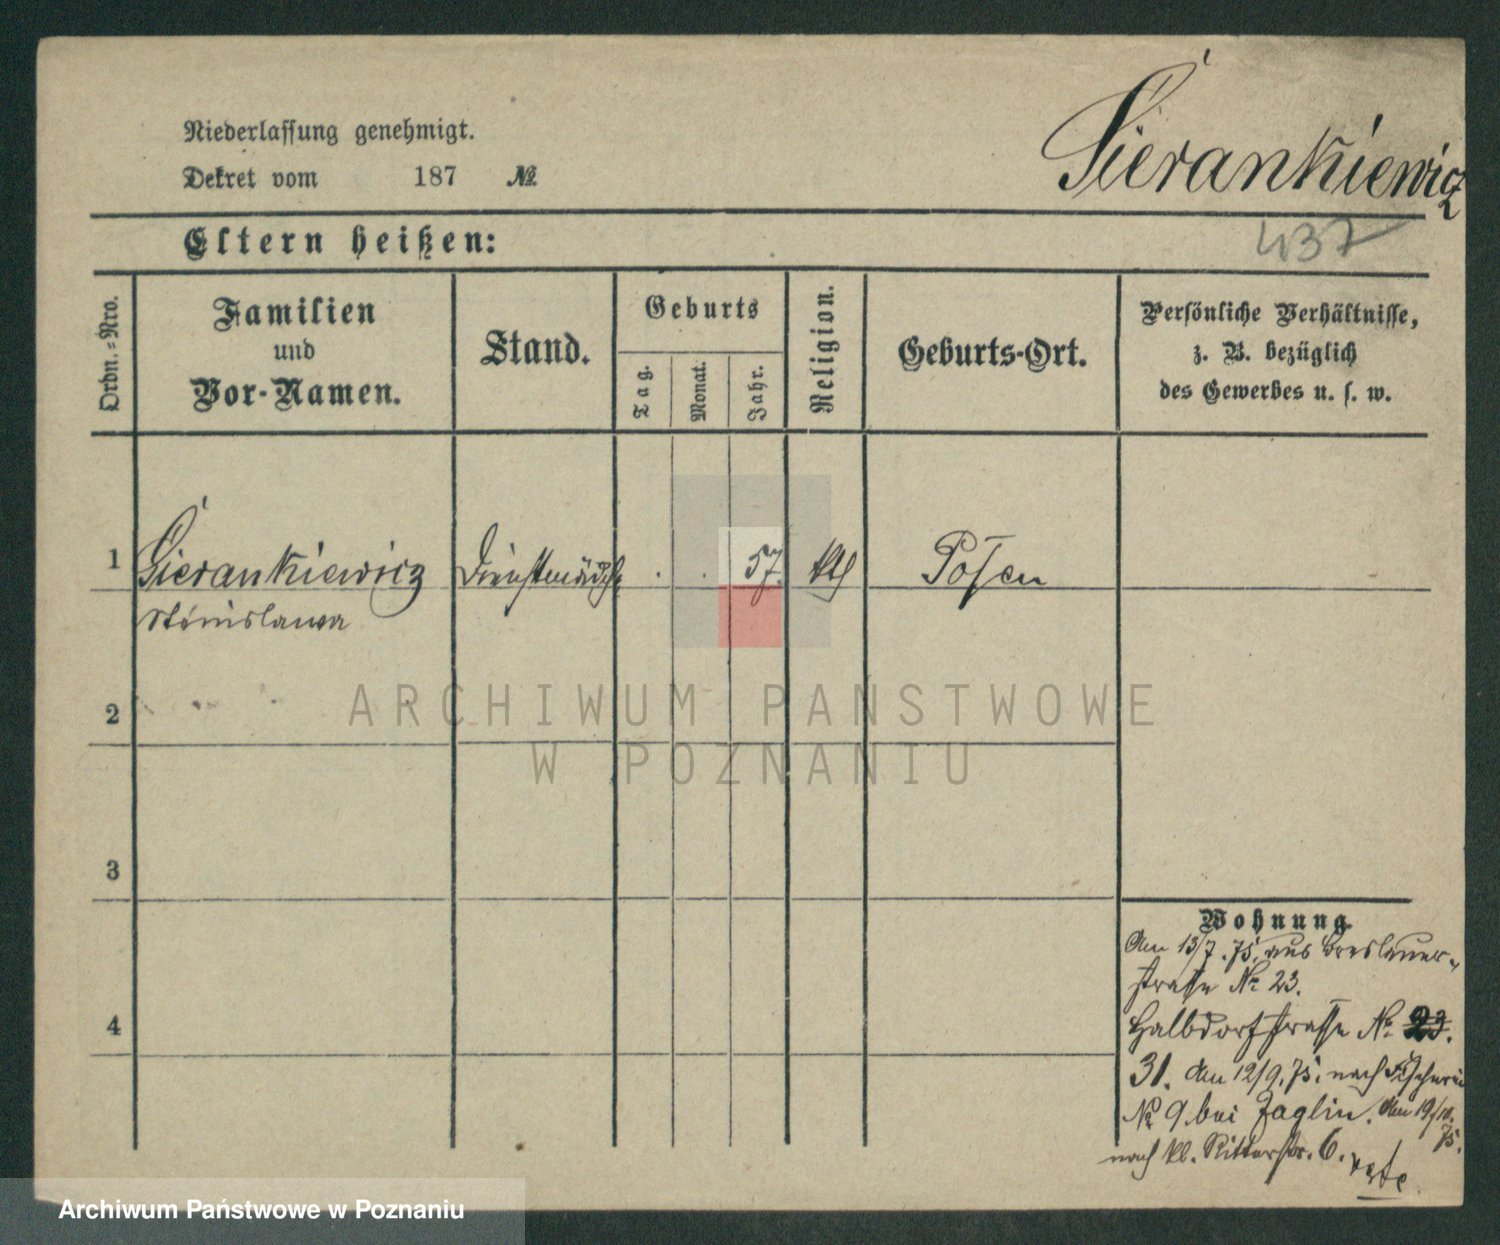 Sierankiewicz
Niederlassung genehmigt.
Dekret vom 187 №
437
Eltern heißen:
Ordn.-Nro.
Familien
und
Vor-Namen.
Stand.
Geburts
Tag.
Monat.
Jahr.
Religion.
Geburts-Ort.
Persönliche Verhältnisse,
z. B. bezüglich
des Gewerbes u. s. w.
1 Sierankiewicz Dienstmädch. . . 57. kth Posen
Stanislawa
2
3
4
Wohnung.
den 13/7. 75. aus Breslauer-
strasse № 23.
Halbdorfstrasse № 23.
31. den 12/9. 75. nach Fischerei
№ 9 bei Jaglin. den 19/10.
75.
nach kl. Ritterstr. 6. verte
ARCHIWUM PAŃSTWOWE
W POZNANIU
Archiwum Państwowe w Poznaniu